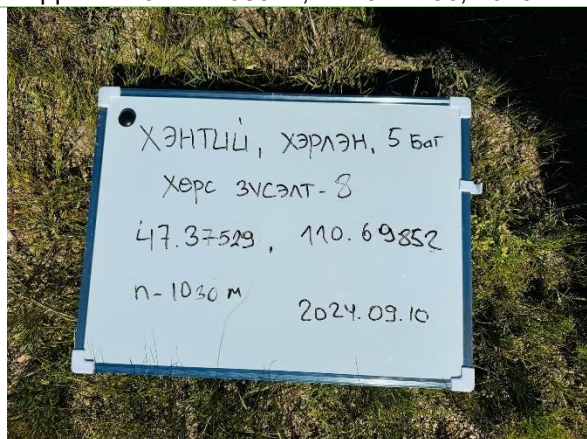 ХЭНТИЙ, ХЭРЛЭН, 5 Баг
ХӨРС ЗҮСЭЛТ - 8
47.37529, 110.69852
n - 1030 м
2024.09.10